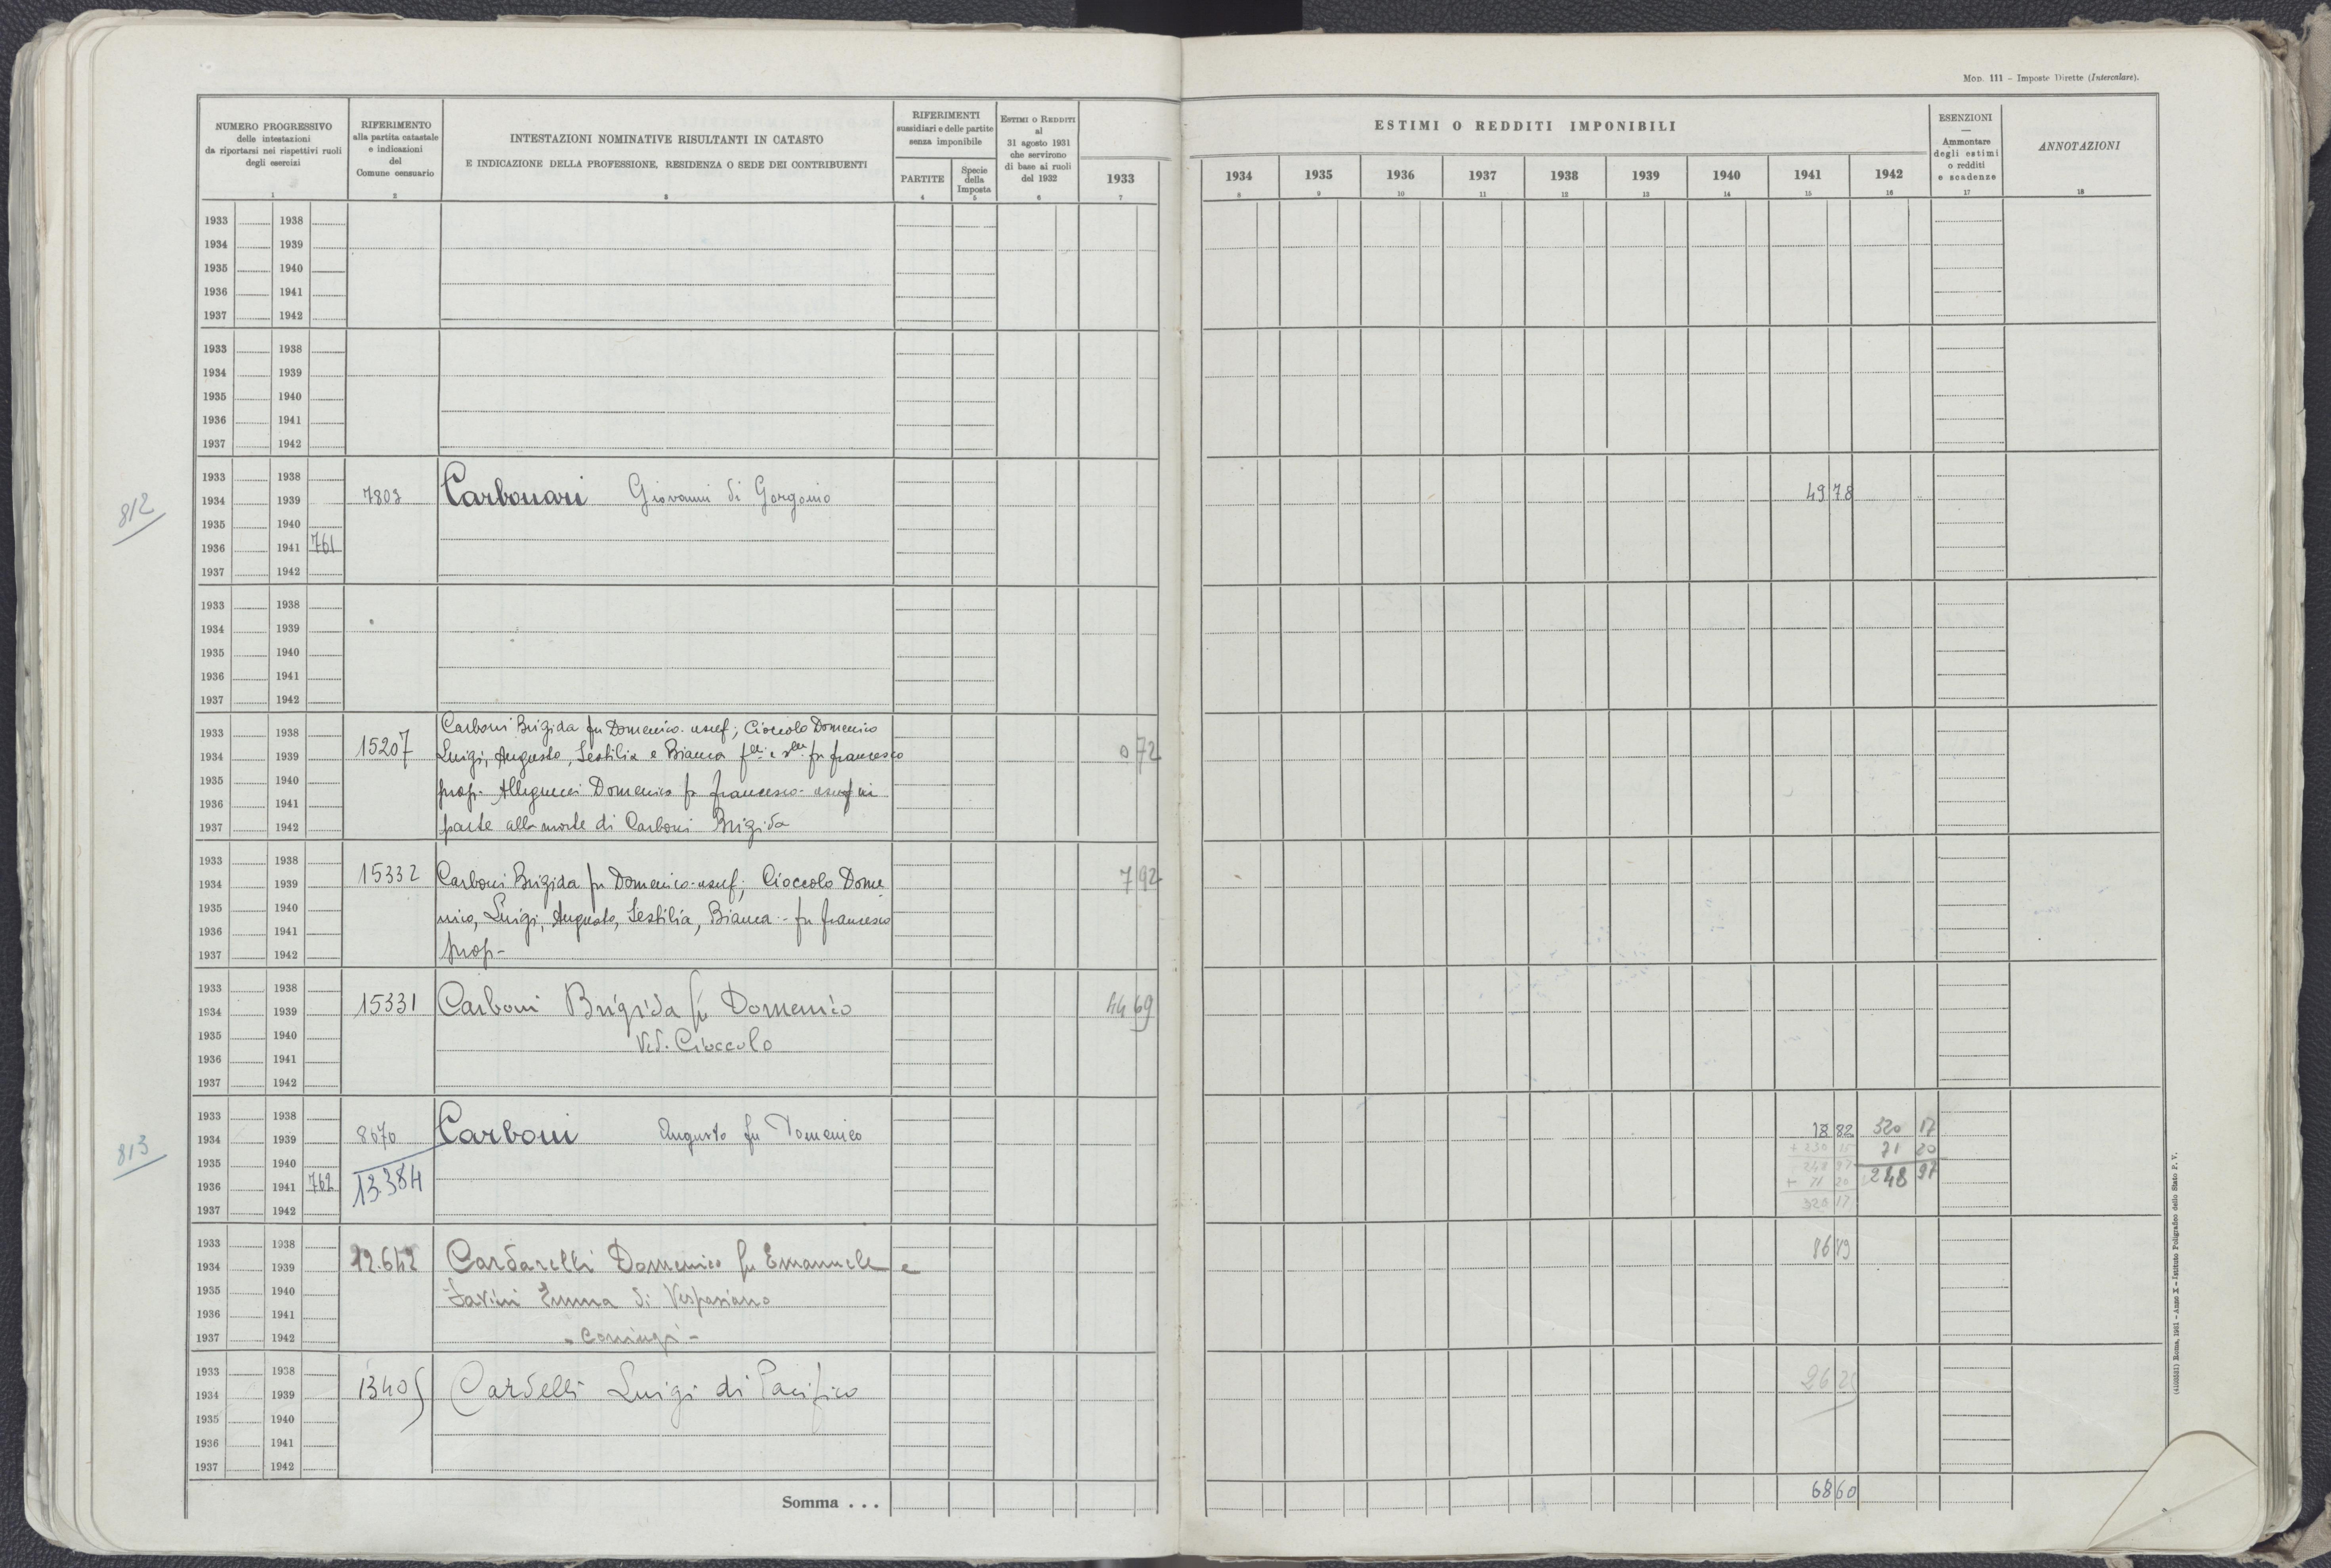 Mod. 111 – Imposte Dirette (Intercalare).
NUMERO PROGRESSIVO
delle intestazioni
da riportarsi nei rispettivi ruoli
degli esercizi
1
RIFERIMENTO
alla partita catastale
e indicazioni
del
Comune censuario
2
INTESTAZIONI NOMINATIVE RISULTANTI IN CATASTO
E INDICAZIONE DELLA PROFESSIONE, RESIDENZA O SEDE DEI CONTRIBUENTI
3
RIFERIMENTI
sussidiari e delle partite
senza imponibile
PARTITE
4
Specie
della
Imposta
5
ESTIMI O REDDITI
al
31 agosto 1931
che servirono
di base ai ruoli
del 1932
6
1933
7
ESTIMI O REDDITI IMPONIBILI
1934 1935 1936 1937 1938 1939 1940 1941 1942
8 9 10 11 12 13 14 15 16
ESENZIONI
—
Ammontare
degli estimi
o redditi
e scadenze
17
ANNOTAZIONI
18
1933 1938
1934 1939
1935 1940
1936 1941
1937 1942
1933 1938
1934 1939
1935 1940
1936 1941
1937 1942
1933 1938
812 1934 1939 7803 Carbonari Giovanni di Gorgonio 49 78
1935 1940
1936 1941 761
1937 1942
1933 1938
1934 1939
1935 1940
1936 1941
1937 1942
1933 1938 Carboni Brigida fu Domenico usuf; Cioccolo Domenico
1934 1939 15207 Luigi, Augusto, Sestilia e Bianca flli e slle fu francesco 0 72
1935 1940
1936 1941 prop. Allegrucci Domenico fu francesco usuf in
1937 1942 parte alla morte di Carboni Brigida
1933 1938
1934 1939 15332 Carboni Brigida fu Domenico usuf; Cioccolo Dome 7 92
1935 1940 nico, Luigi, Augusto, Sestilia, Bianca - fu francesco
1936 1941
1937 1942 prop-
1933 1938
1934 1939 15331 Carboni Brigida fu Domenico 44 69
1935 1940 Ved. Cioccolo
1936 1941
1937 1942
1933 1938
813 1934 1939 8070 Carboni Augusto fu Domenico 18 82 320 17
1935 1940 + 230 15 71 20
1936 1941 762 13.384 248 97 248 97
+ 71 20
1937 1942 320 17
1933 1938 86 19
1934 1939 12.642 Cardarelli Domenico fu Emanuele e
1935 1940 Savini Emma di Vespasiano
1936 1941
1937 1942 - coniugi -
1933 1938
1934 1939 13405 Cardelli Luigi di Pacifico
1935 1940
1936 1941
1937 1942
Somma . . . 68 60
(4100581) Roma, 1931 – Anno X – Istituto Poligrafico dello Stato P. V.